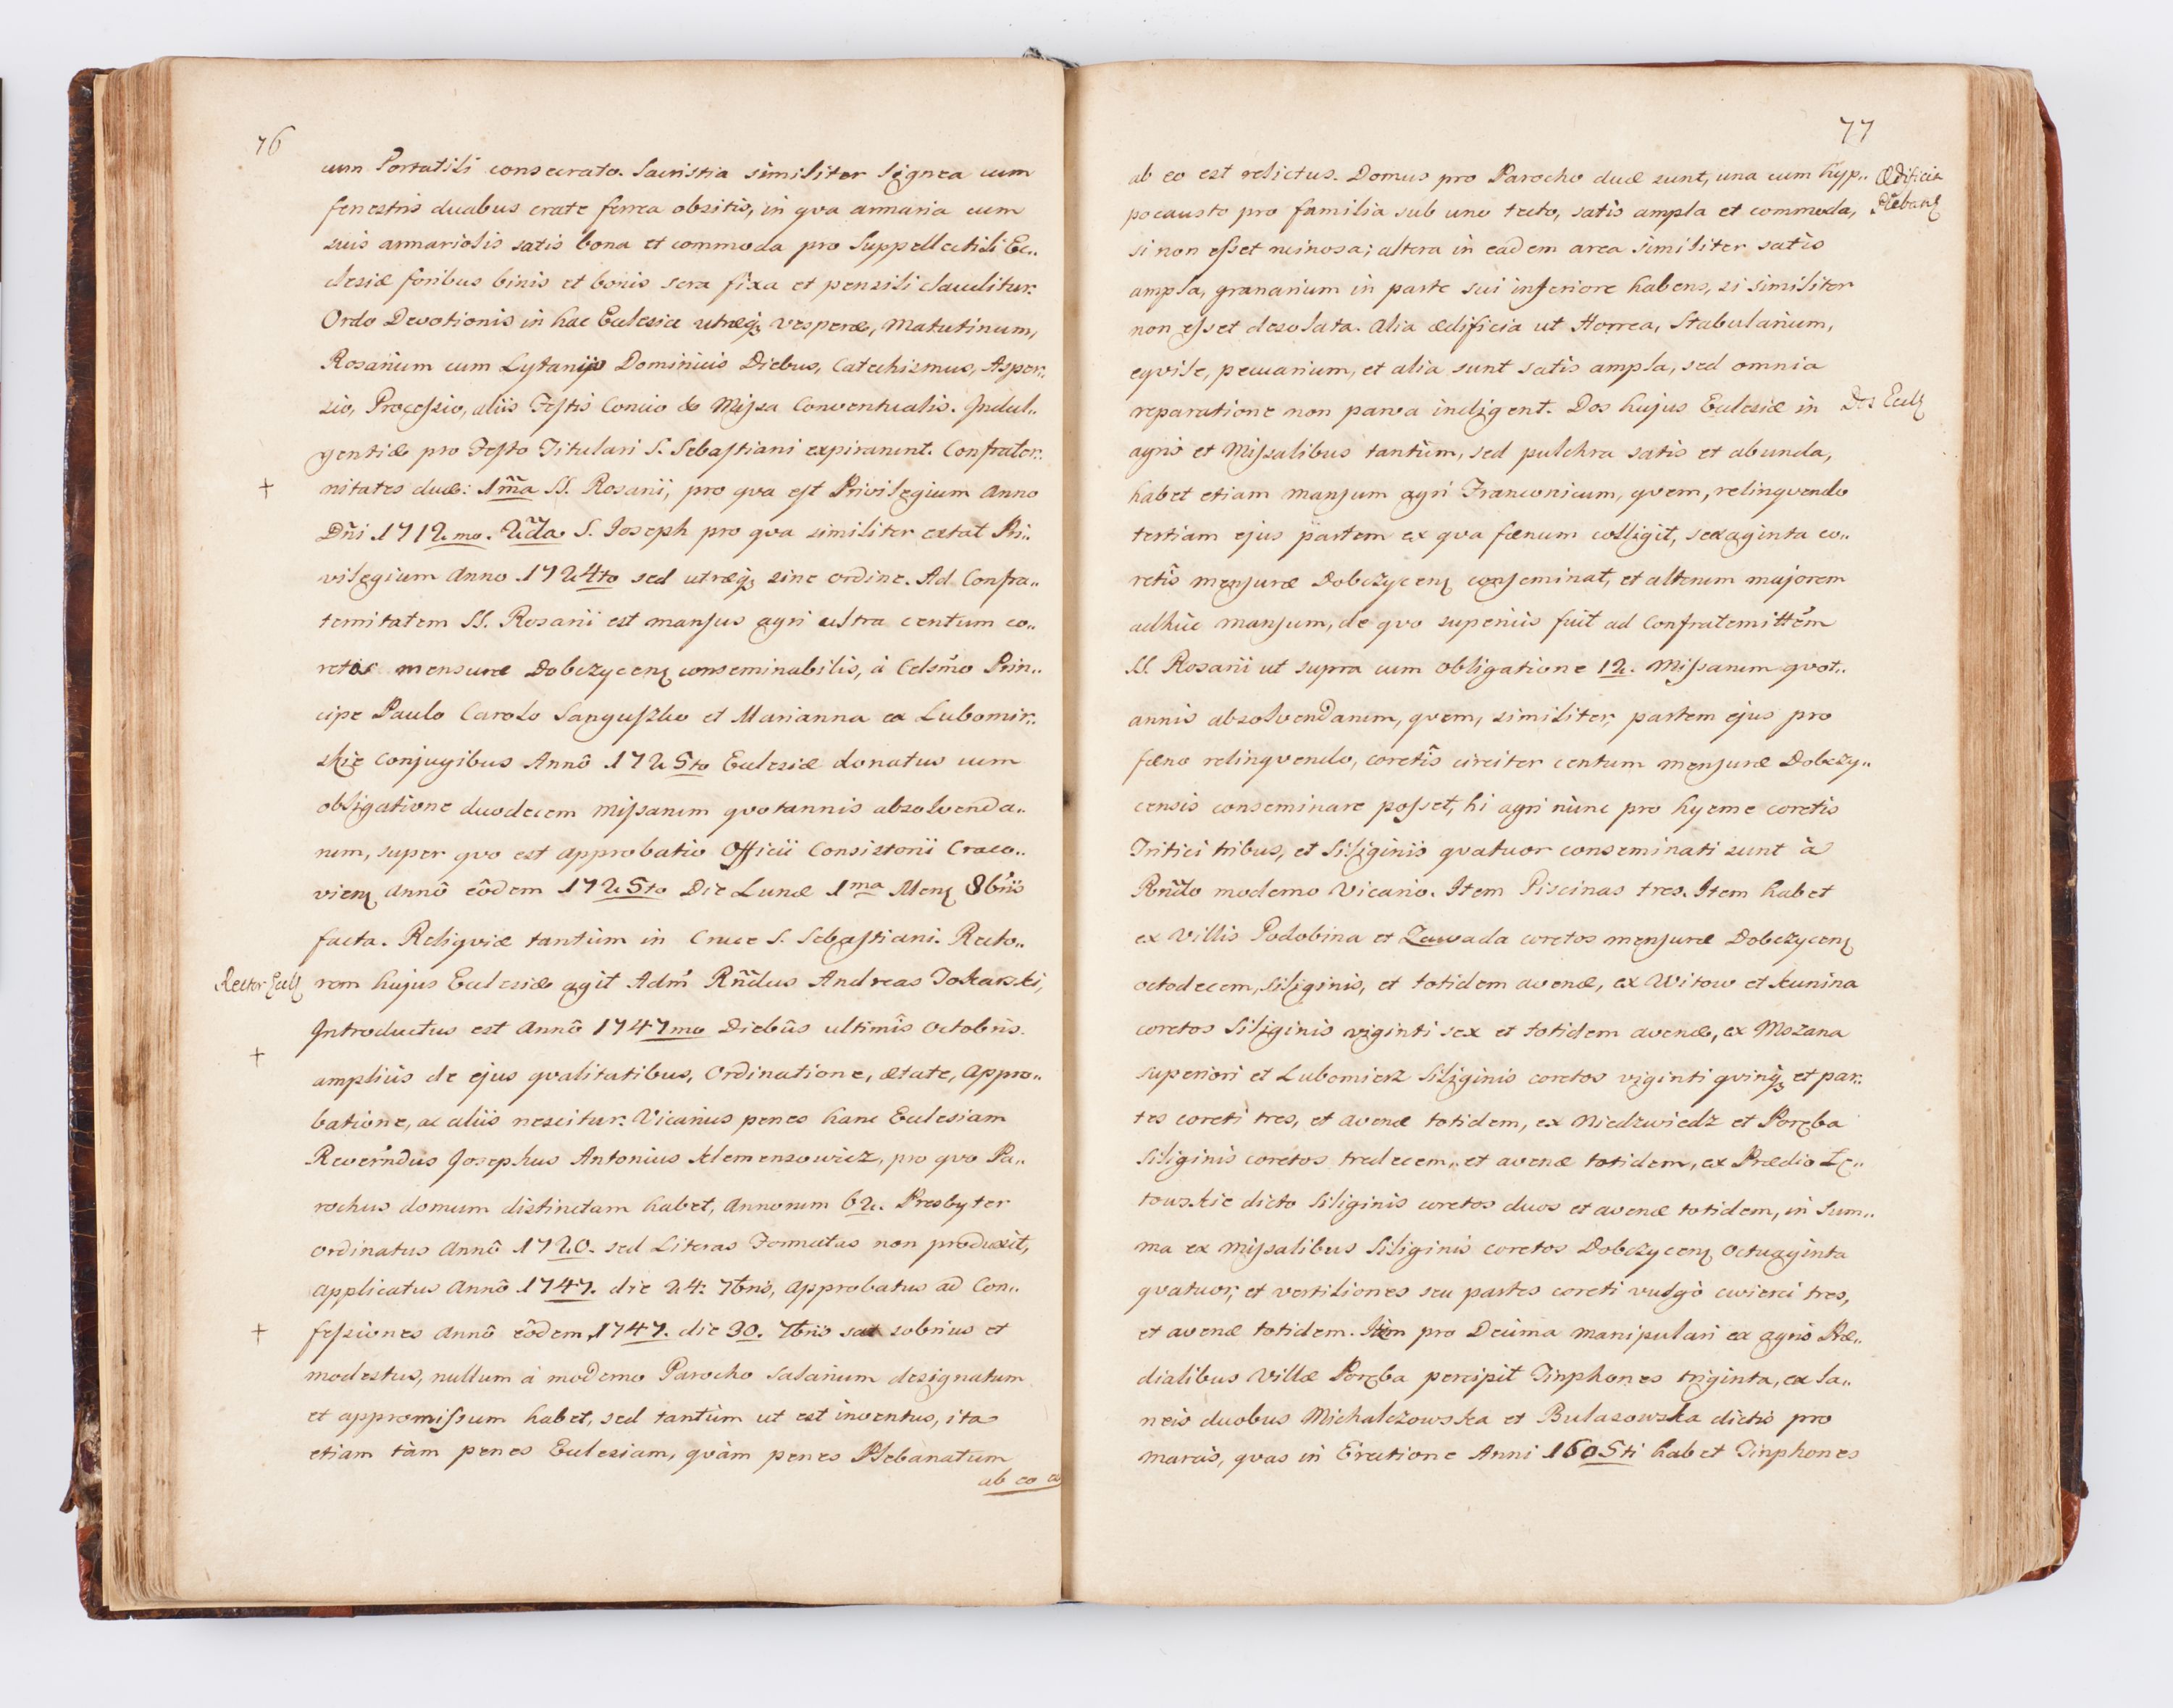 76
cum Portatili consecrato. Sacristia similiter lignea cum
fenestris duabus crate ferrea obsitis, in qva armaria cum
suis armariolis satis bona et commoda pro Suppellectili Ec„
clesiæ foribus binis et bonis sera fixa et pensili clauditur.
Ordo Devotionis in hac Ecclesia utræq₃ Vesperæ, Matutinum,
Rosarium cum Lytaniis Dominicis Diebus, Catechismus, Asper„
sio, Processio, aliis Festis Concio & Missa Conventualis. Indul„
gentiæ pro Festo Titulari S. Sebastiani expirarunt. Confrater„
+
nitates duæ: 1m̃a SS. Rosarii, pro qva est Privilegium Anno
Dñi 1712mo. 2d̃a S. Joseph pro qva similiter extat Pri„
vilegium Anno 1724to sed utræq₃ sine ordine. Ad Confra„
ternitatem SS. Rosarii est mansus agri ultra centum co„
retos mensuræ Dobczycenʒ conseminabilis, à Celsm̃o Prin„
cipe Paulo Carolo Sanguszko et Marianna ex Lubomir„
skie Conjugibus Annô 1725to Ecclesiæ donatus cum
obligatione duodecem Missarum qvotannis absolvenda„
rum, super qvo est approbatio Officii Consistorii Craco„
vienʒ Annô eôdem 1725to Die Lunæ 1ma Menʒ 8bris
facta. Reliqviæ tantùm in Cruce S. Sebastiani. Recto„
Rector Eccłʒ
rem hujus Ecclesiæ agit Adm̃ Rñdus Andreas Tokarski,
Introductus est Annô 1747mo Diebûs ultimîs Octobris.
+
ampliùs de ejus qvalitatibus, Ordinatione, ætate, Appro„
batione, ac aliis nescitur. Vicarius penes hanc Ecclesiam
Revern̄dus Josephus Antonius Klemensowicz, pro qvo Pa„
rochus domum distinctam habet, Annorum 62. Presbyter
Ordinatus Annô 1720. sed Literas Formatas non produxit,
Applicatus Annô 1747. die 24. 7bris, Approbatus ad Con„
+
fessiones Annô eôdem 1747. die 30. 7bris sat sobrius et
modestus, nullum à moderno Parocho Salarium designatum
et appromissum habet, sed tantùm ut est inventus, ita
etiam tàm penes Ecclesiam, qvàm penes Plebanatum
ab eo
77
ab eo est relictus. Domus pro Parocho duæ sunt, una cum hyp„
Ædificia
pocausto pro familia sub uno tecto, satis ampla et commoda,
Plebanʒ
si non esset ruinosa; altera in eadem area similiter satis
ampla, granarium in parte sui inferiore habens, si similiter
non esset desolata. Alia ædificia ut Horrea, Stabularium,
eqvile, pecuarium, et alia sunt satis ampla, sed omnia
reparatione non parva indigent. Dos hujus Ecclesiæ in
Dos Eccłʒ
agris et Missalibus tantùm, sed pulchra satis et abunda,
habet etiam mansum agri Franconicum, qvem, relinqvendo
tertiam ejus partem ex qva fœnum colligit, sexaginta co„
retis mensuræ Dobczycenʒ conseminat, et alterum majorem
adhùc mansum, de qvo superiùs fuit ad Confraternittẽm
SS. Rosarii ut supra cum obligatione 12. Missarum qvot„
annis absolvendarum, qvem, similiter, partem ejus pro
fœno relinqvendo, coretis circiter centum mensuræ Dobczy„
censis conseminare posset, hi agri nùnc pro hyeme coretis
Tritici tribus, et Siliginis qvatuor conseminati sunt à
Rñdo moderno Vicario. Item Piscinas tres. Item habet
ex Villis Podobina et Zawada coretos mensuræ Dobczycenʒ
octodecem, Siliginis, et totidem avenæ, ex Witow et Kunina
coretos Siliginis viginti sex et totidem avenæ, ex Mszana
superiori et Lubomierz Siliginis coretos viginti qvinq₃ et par„
tes coreti tres, et avenæ totidem, ex Niedzwiedz et Poręba
Siliginis coretos tredecem„ et avenæ totidem, ex Prædio Lę„
towskie dicto Siliginis coretos duos et avenæ totidem, in Sum„
ma ex Missalibus Siliginis coretos Dobczycenʒ Octuaginta
qvatuor, et vertiliones seu partes coreti vulgò cwierci tres,
et avenæ totidem. Item pro Decima manipulari ex agris Præ„
dialibus Villæ Poręba percipit Tinphones triginta, ex la„
neis duobus Michalczowska et Bulasowska dictis pro
marcis, qvas in Erectione Anni 1605ti habet Tinphones